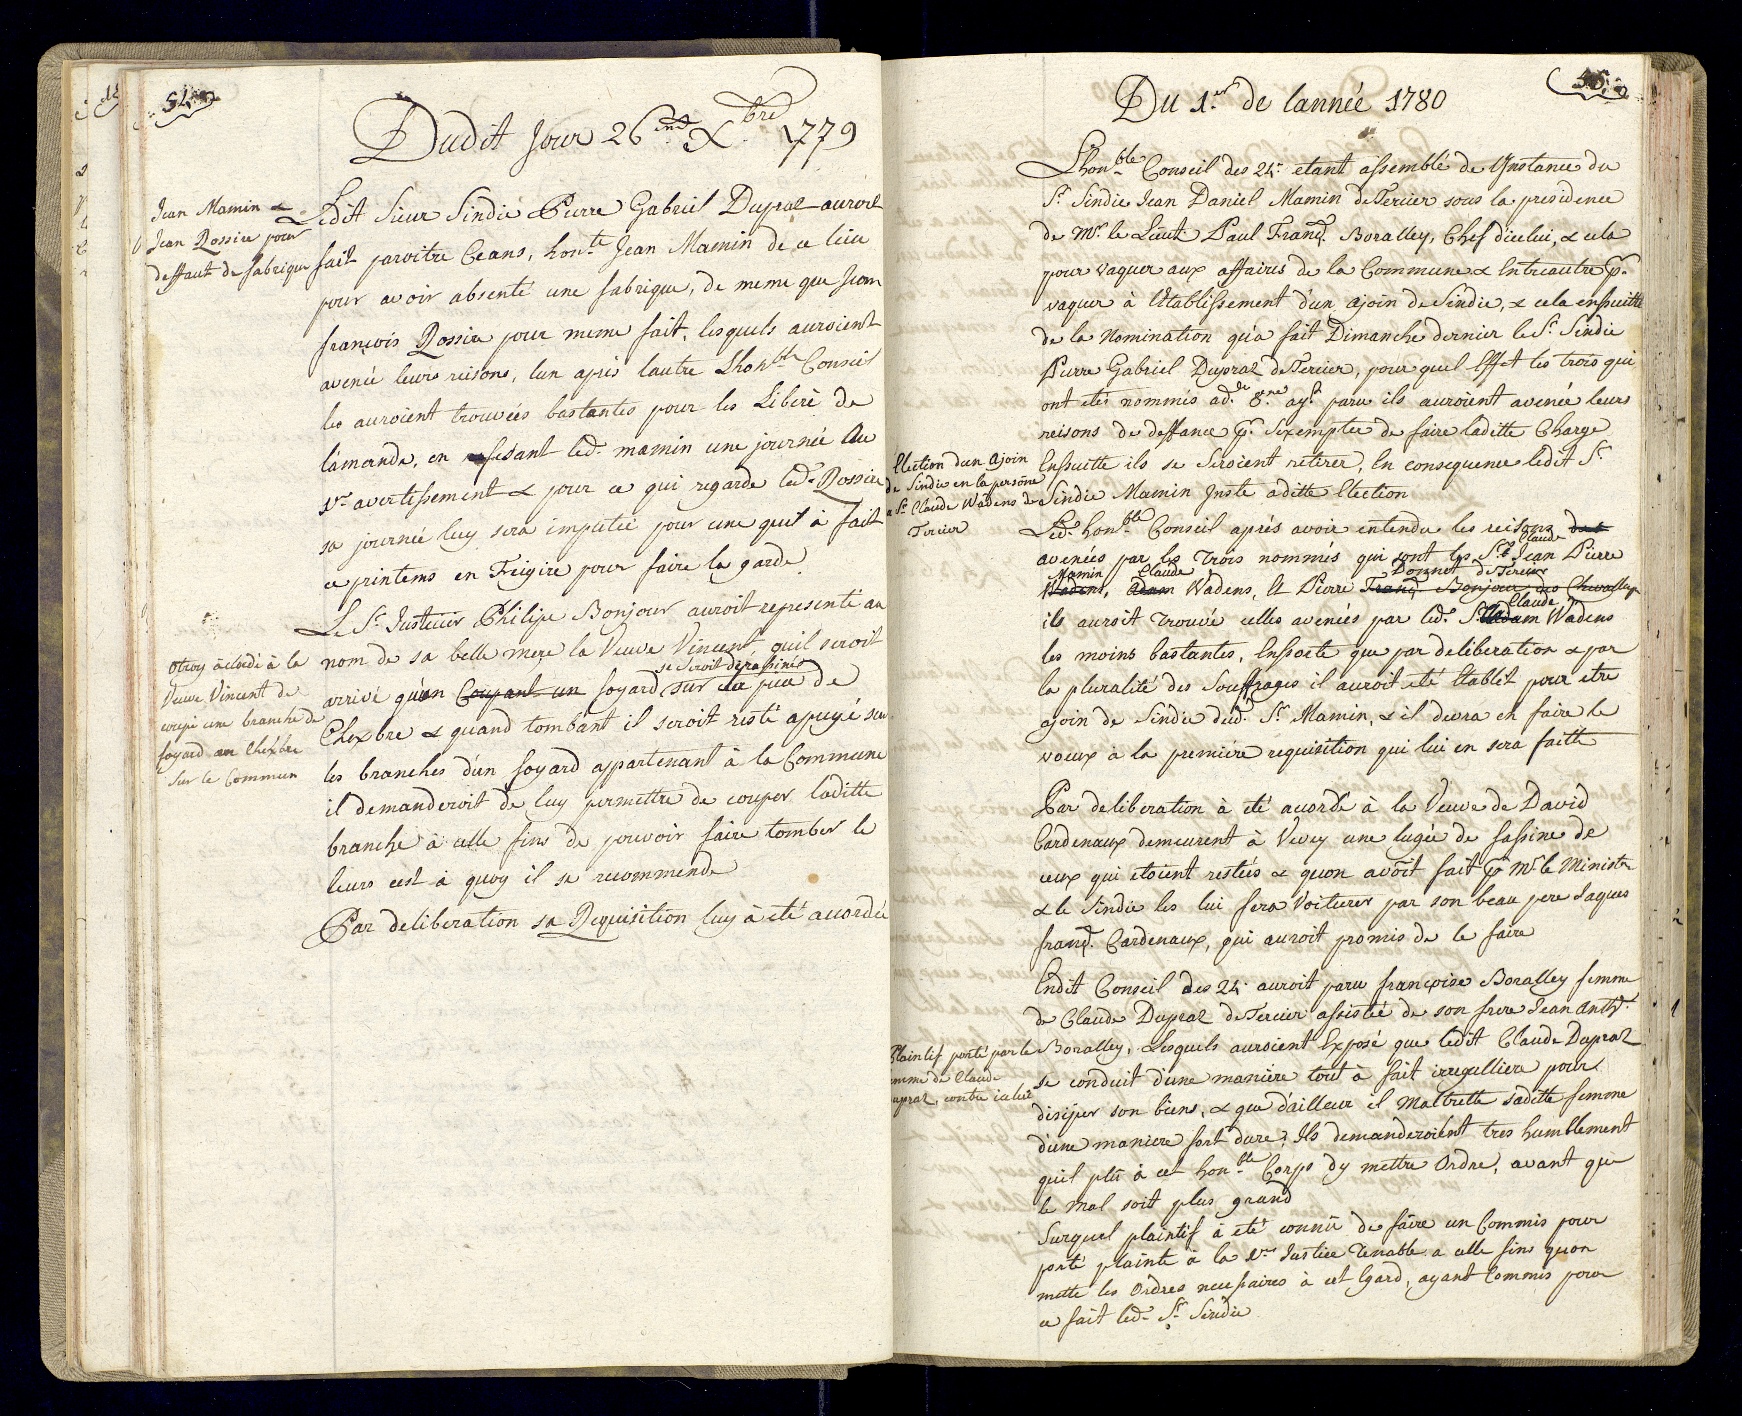 54.
Dudit Jour 26.me Xbre 1779
Jean Mamin &
Jean Rossire pour
deffaut de fabrique
Ledit Sieur Sindic Pierre Gabriel Dupraz auroit
fait paroitre Ceans, hon.te Jean Mamin de ce lieu
pour avoir absenté une fabrique, de meme que Jean
françois Rossire pour meme fait, lesquels auroient
avencé leurs reisons, lun aprés lautre Lhon.ble Conseil
les auroient trouvées bastantes pour les Liberé de
lámende, en fesdant led. mamin une journée Au
1.er avertissement & pour ce qui regarde led. Rossire
sa journée luy sera imputée pour une quil à fait
ce printems en Freigire pour faire la garde
Otroy àcordé à la
Veuve Vincent de
coupé une branche de
foyard en Chexbre
Sur le Commun
Le S.r Justicier Philipe Bonjour auroit representé au
nom de sa belle mere la Veuve Vincent, quil seroit
se Seroit derassiné
arrivé quún Coupant un foyard sur sa piece de
Chexbre & quand tombant il seroit resté apuyé sur
les branches d'un foyard appartenant à la Commune
il demanderoit de luy permettre de couper laditte
branche à celle fins de pouvoir faire tomber le
leurs cest à quoy il se recommende
Par deliberation sa Requisition luy à eté acordée
55.
Du 1.er de lannée 1780
Lhon.ble Conseil des 24. etant assemblé de L'Instance du
S.r Sindic Jean Daniel Mamin de Tercier sous la presidence
de Mr. le Lieut. Paul Franç. Boralley, Chef d'icelui, & cela
pour vaquer aux affaires de la Commune & Entreautre p.r
vaquer à létablissement d'un ajoin de Sindic, & cela ensuitte
de la Nomination qu'a fait Dimanche dernier le S.r Sindic
Pierre Gabriel Dupraz de Tercier, pour quel Effet les trois qui
ont etés nommés ayt. paru ils auroient avencé leurs
reisons de deffance p.r Sexempter de faire laditte Charge
Ensuitte ils se Seroient retirer, En consequence ledit S.r
Election d'un Ajoin
de Sindic en la persone
a S.r Claude Wadens de
Tercier
Sindic Mamin Inste aditte Election
Led. hon.ble Conseil aprés avoir entendu les reisons
Claude
avencées par les trois nommés qui sont les S.rs Jean Pierre
Mamin Claude Donnet de Tercier
Wadens, Adam Wadens, Et Pierre Franç. Bonjour des Chevalleyr
Claude
ils auroit trouvé celles avencées par led. S.r Adam Wadens
les moins bastantes, Ensorte que par deliberation & par
la pluralité des Souffrages il auroit eté Etablit pour etre
ajoin de Sindic dud. S.r Mamin, & il devra en faire le
voeux à la premiére requisition qui lui en sera faitte
Par deliberation à eté acordé à la Veuve de David
Cardenaux demeurent à Vevey une lugée de fassine de
ceux qui etoient restées & quon avoit fait p.r Mr. le Ministre
& le Sindic les lui fera Voiturer par son beau pere Jaques
franç. Cardenaux, qui auroit promis de le faire
Endit Conseil des 24. auroit paru françoise Boralley femme
de Claude Dupraz de Tercier assistée de son frere Jean Anth.
Plaintif porté par la
emme de Claude
upraz, contre icelui
Boralley, Lesquels auroient Exposé que ledit Claude Dupraz
se conduit d'une maniere tout à fait irregulliere pour
disiper son biens, & que d'ailleur il Maltrette saditte femme
d'une maniere fort dure; Ils demanderoient tres humblement
quil plû à cet hon.ble Corps dy mettre Ordre, avant que
le Mal soit plus grand
Surquel plaintif à eté connû de faire un Commis pour
porté plainte à la V.ble Justice Tenable a celle fins quon
mette les Ordres necessaires à cet Egard, ayant Commis pour
ce fait led. S.r Sindic